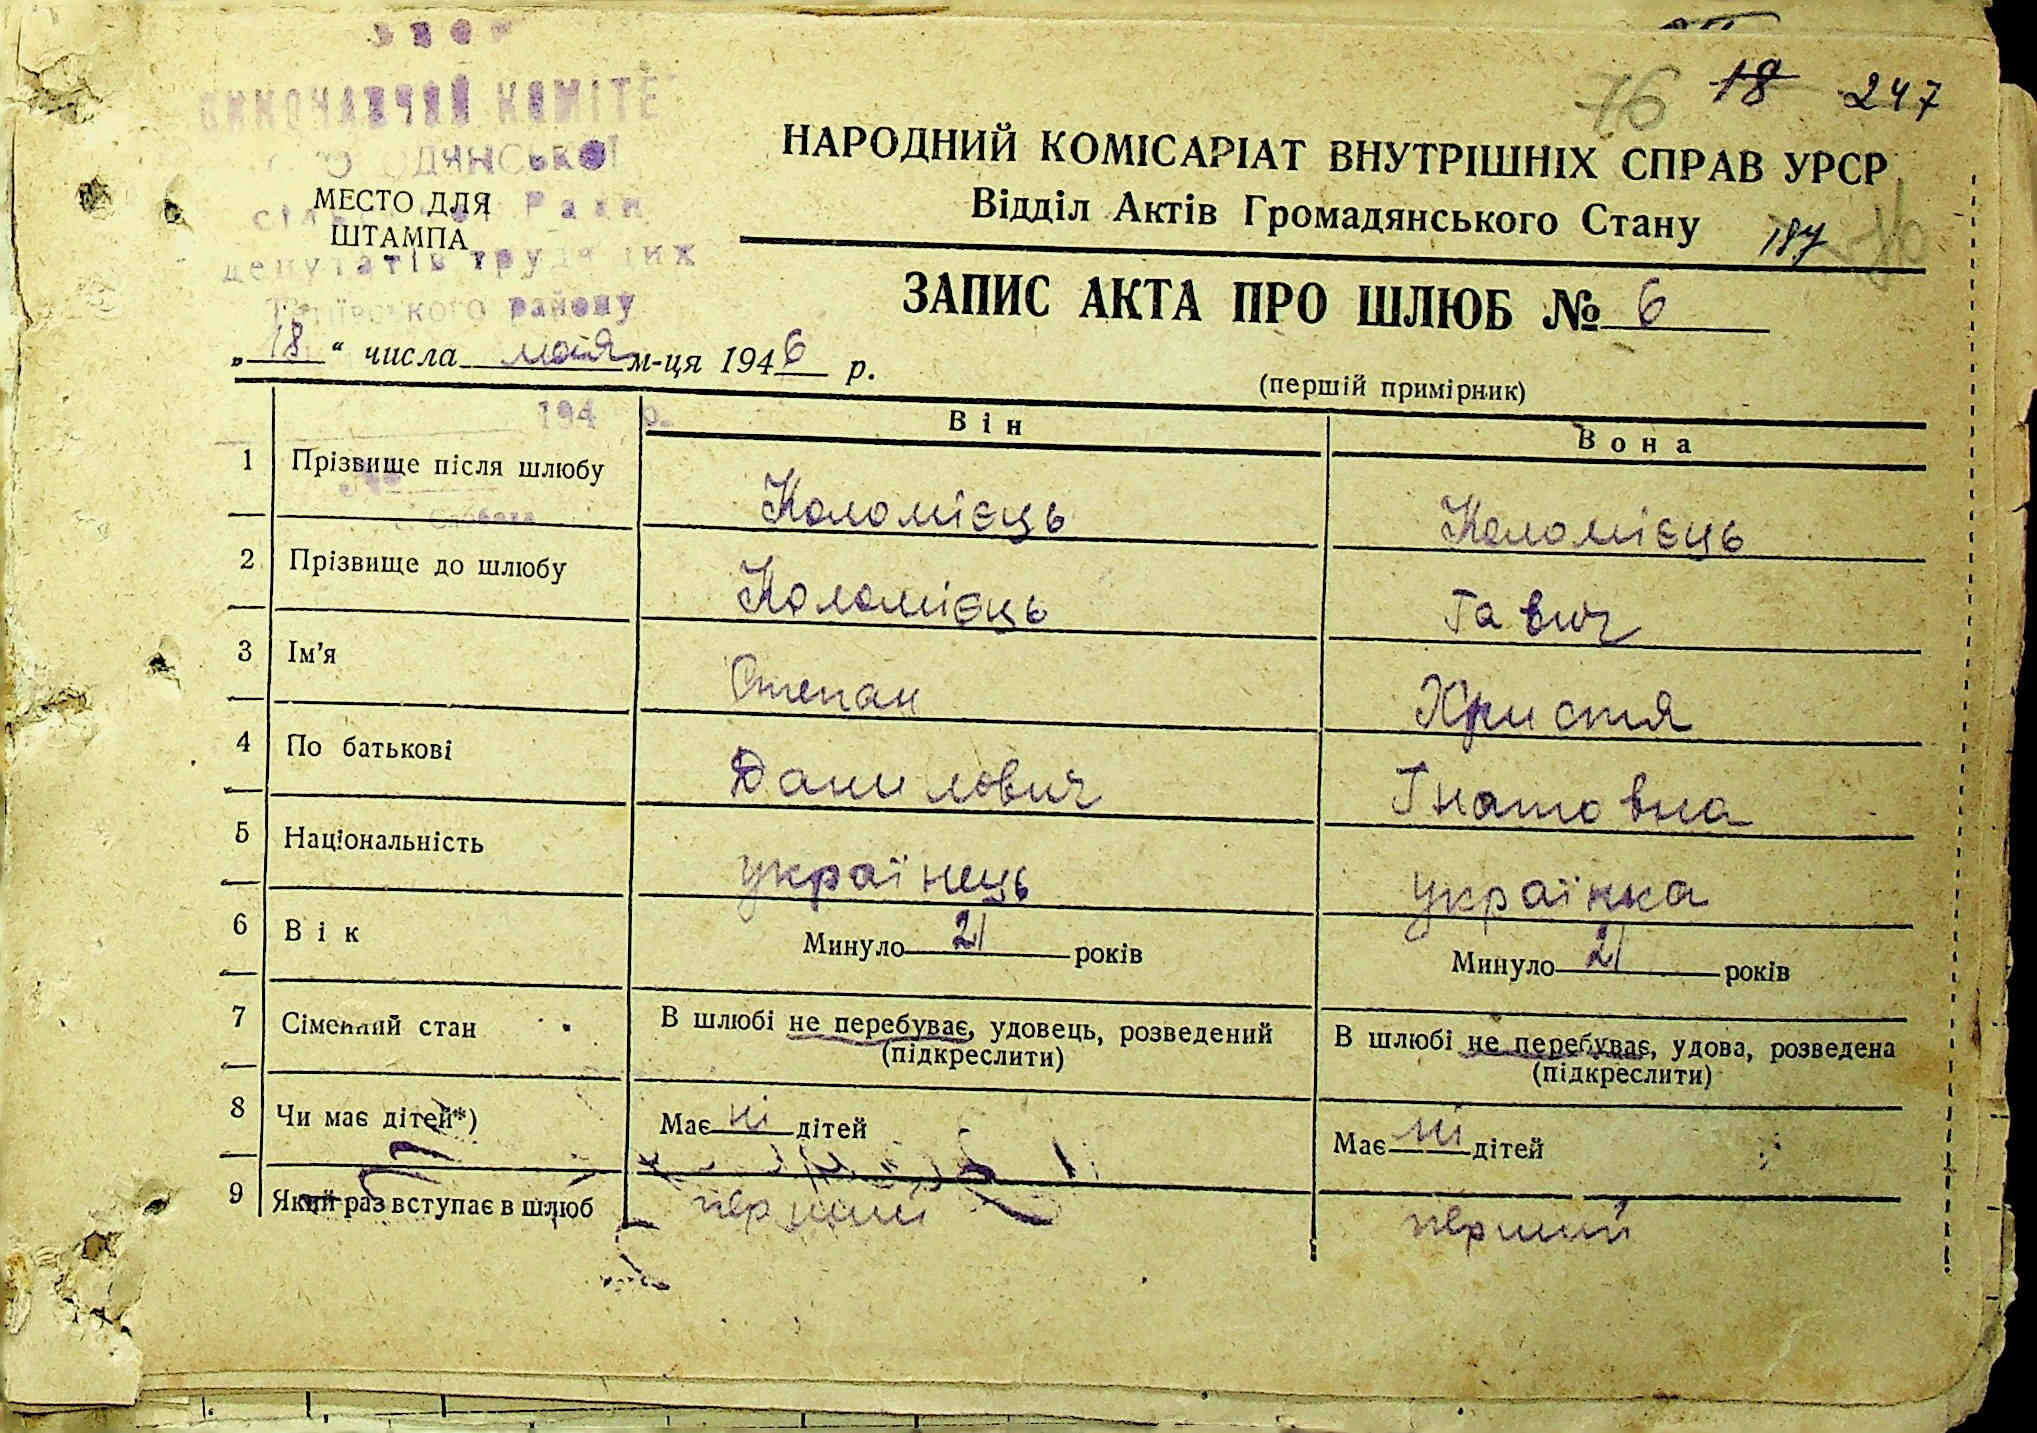 76 18 247
ВИКОНАВЧИЙ КОМІТЕ
НАРОДНИЙ КОМІСАРІАТ ВНУТРІШНІХ СПРАВ УРСР
МЕСТО ДЛЯ
ШТАМПА
Відділ Актів Громадянського Стану
депутатів трудящих
району
ЗАПИС АКТА ПРО ШЛЮБ № 6
„18“ числа мая м-ця 1946 р.
(першій примірник)
194 р.
Він Вона
1 Прізвище після шлюбу Коломієць Коломієць
2 Прізвище до шлюбу Коломієць Гавич
3 Ім'я Степан Христя
4 По батькові Данилович Гнатовна
5 Національність українець українка
6 Вік Минуло 21 років Минуло 21 років
7 Сімейний стан В шлюбі не перебуває, удовець, розведений В шлюбі не перебуває, удова, розведена
(підкреслити) (підкреслити)
8 Чи має дітей*) Має ні дітей Має ні дітей
9 Який раз вступає в шлюб перший перший